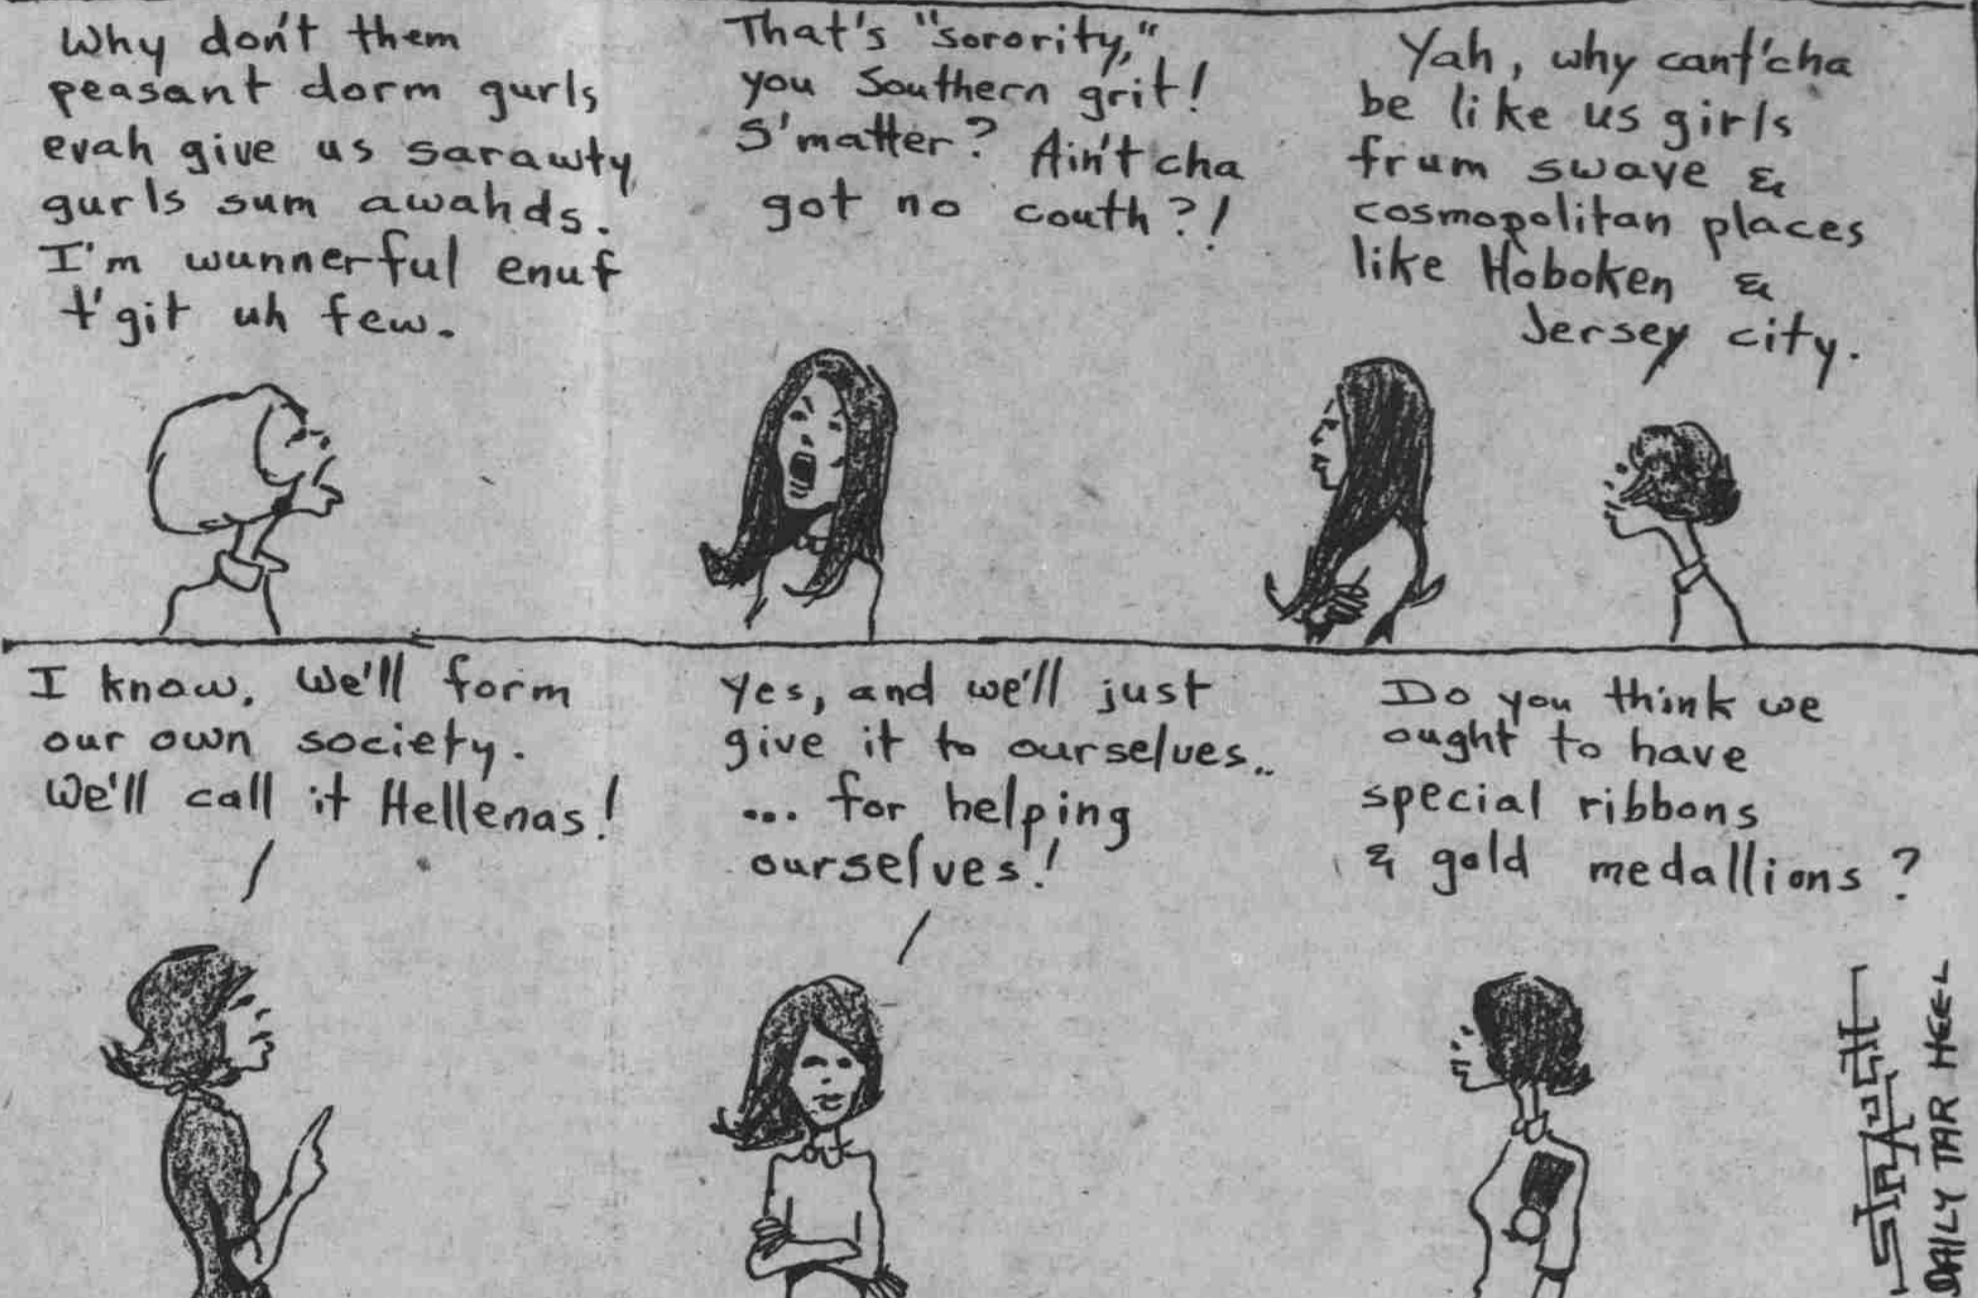 Why don't them
peasant dorm gurls
evah give us sarawty
gurls sum awahds.
I'm wunnerful enuf
t'git uh few.
That's "sorority,"
you Southern grit!
S'matter? Ain't cha
got no couth?!
Yah, why cant'cha
be like us girls
frum swave &
cosmopolitan places
like Hoboken &
Jersey city.
I know. We'll form
our own society.
We'll call it Hellenas!
Yes, and we'll just
give it to ourselves..
... for helping
ourselves!
Do you think we
ought to have
special ribbons
& gold medallions?
DAILY TAR HEEL